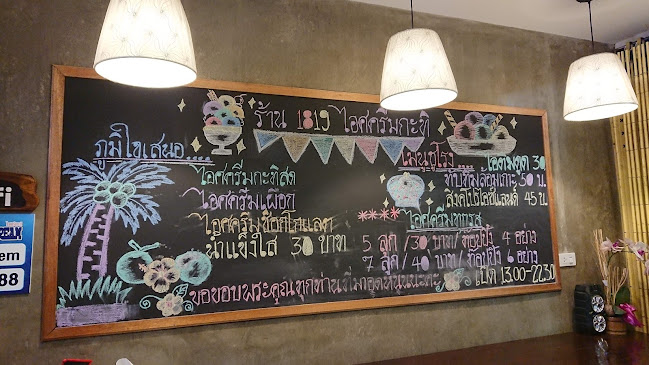 ร้าน 1819 ไอศครีมกะทิ
ภูมิใจเสนอ....
ไอศครีมกะทิสด
ไอศครีมเผือก
ไอศครีมช็อกโกแลต
น้ำแข็งใส 30 บาท
เมนูชูโรง...
ไอติมทอด 30
ทับทิมล้อมเกาะ 50 บ.
**** ไอศครีมทุกรส
5 ลูก/30 บาท/ท้อปปิ้ง 4 อย่าง
7 ลูก/40 บ./ท้อปปิ้ง 6 อย่าง
เปิด 13.00-22.30
ขอขอบพระคุณทุกท่านที่มาอุดหนุนนะคะ
Fi
em
88